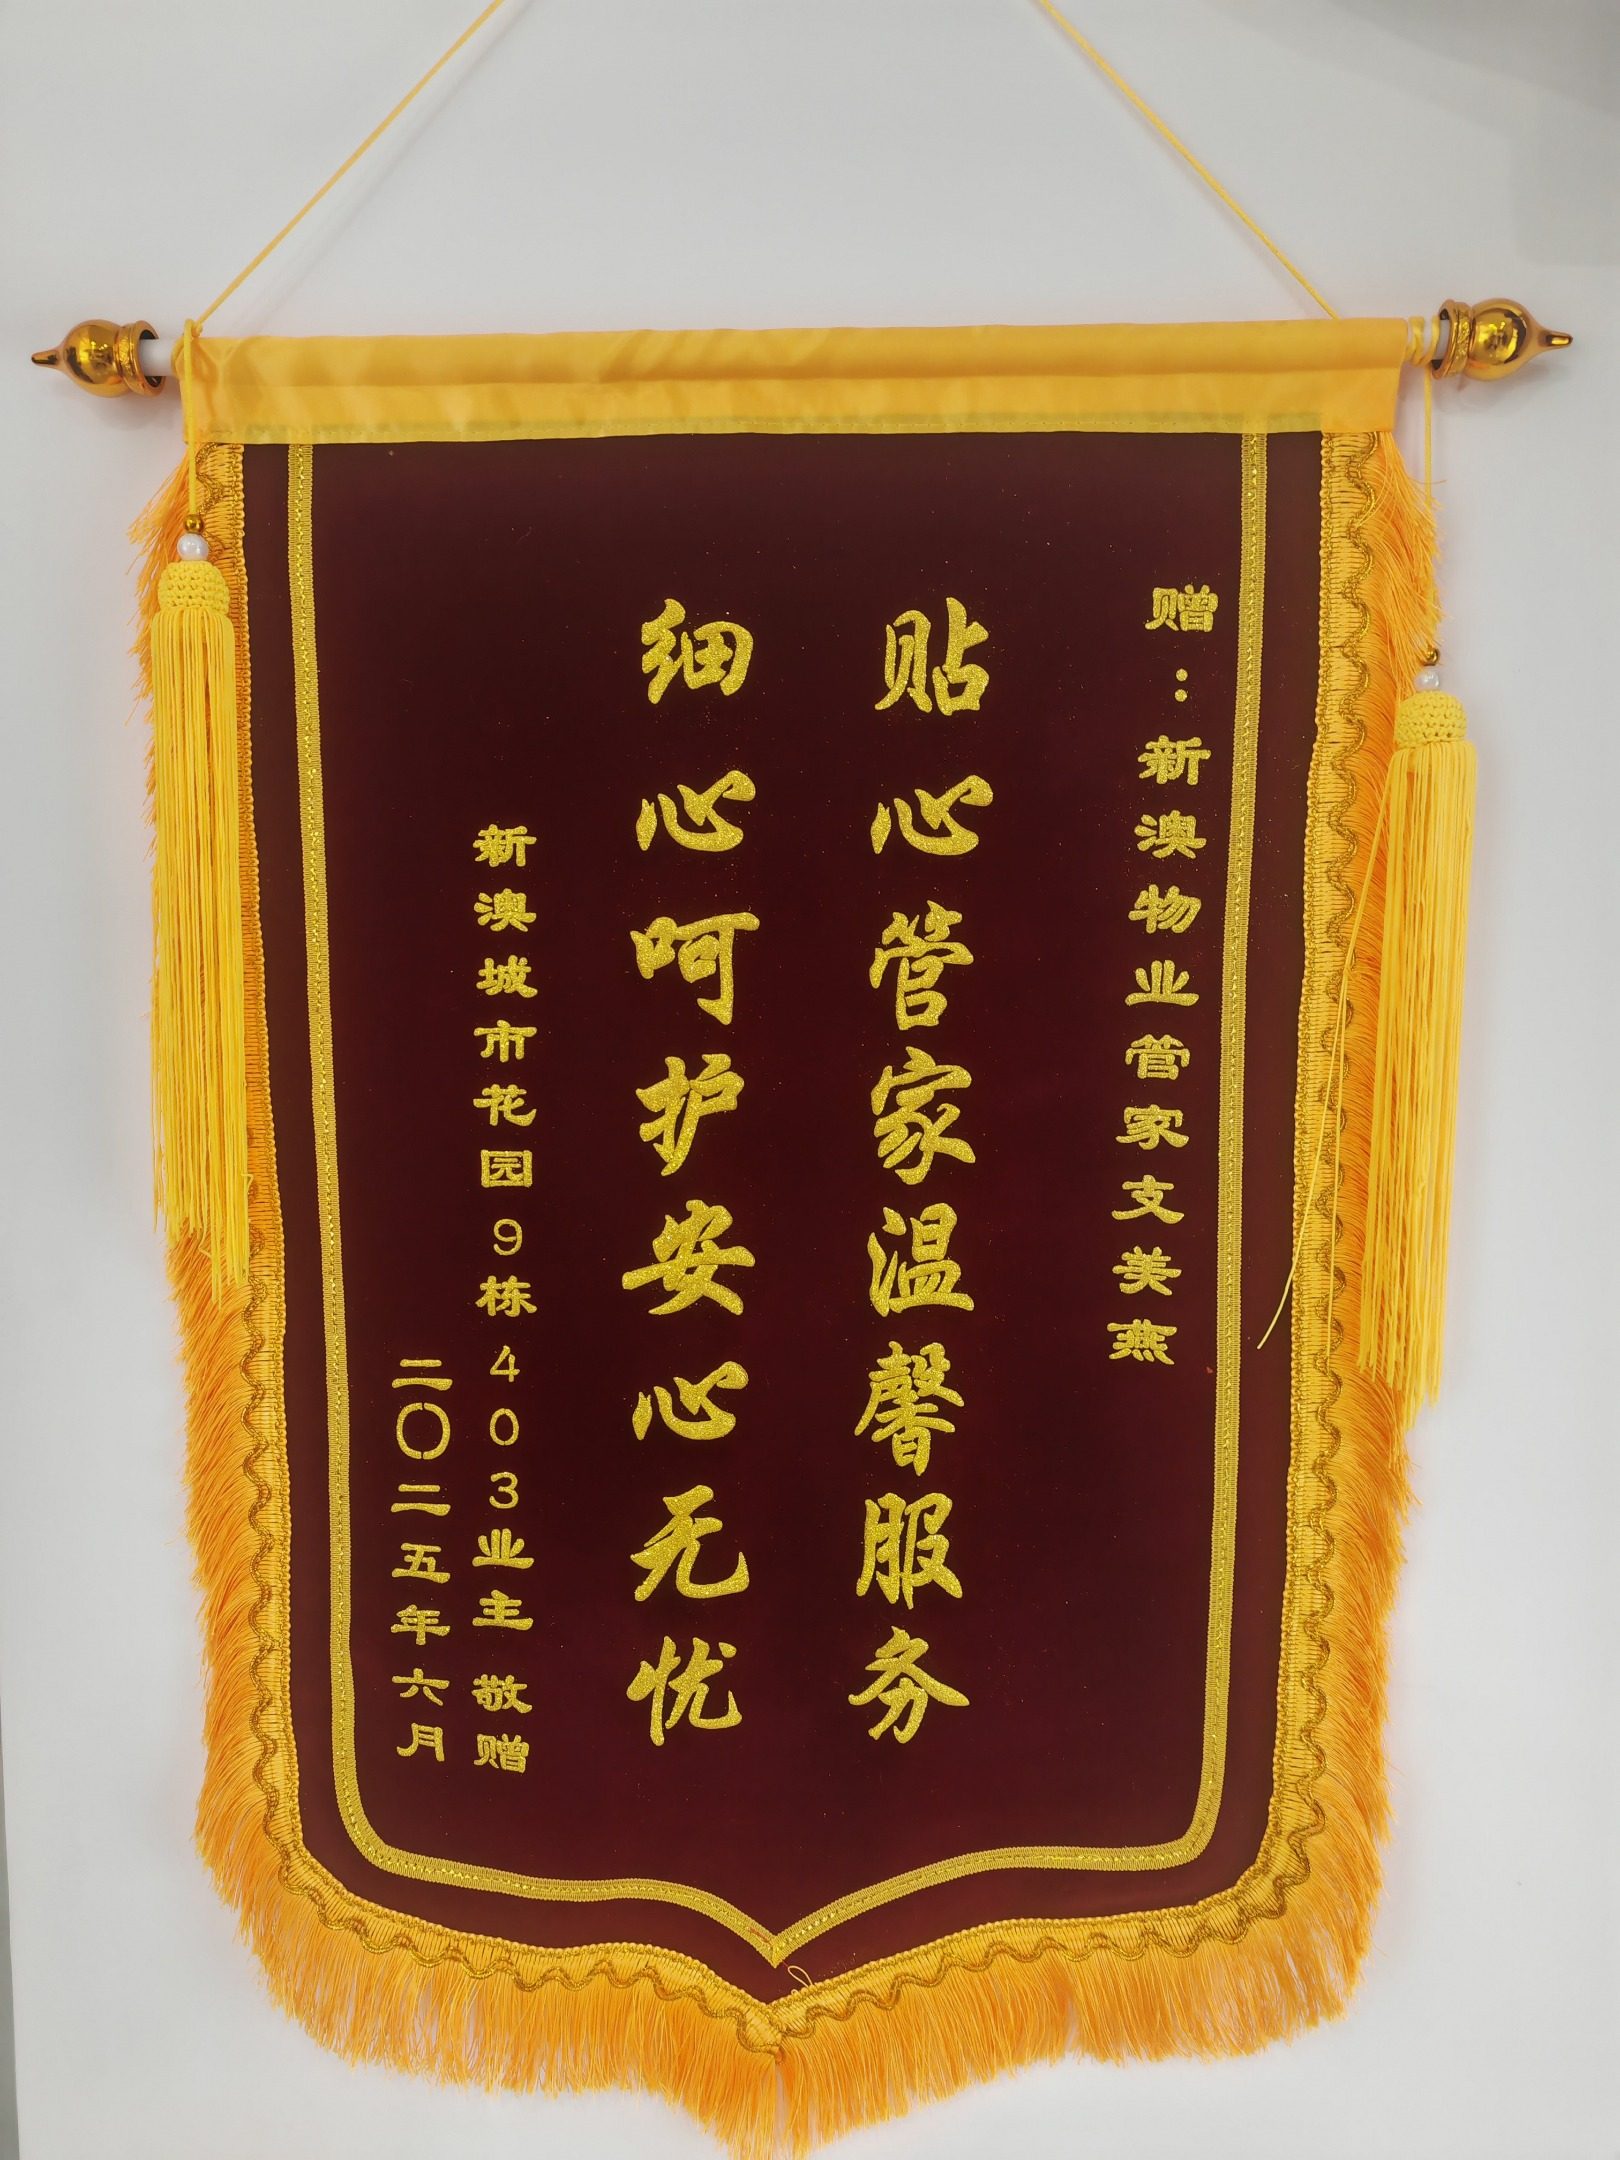 赠：新澳物业管家支美燕
贴心管家温馨服务
细心呵护安心无忧
新澳城市花园9栋403业主 敬赠
二〇二五年六月